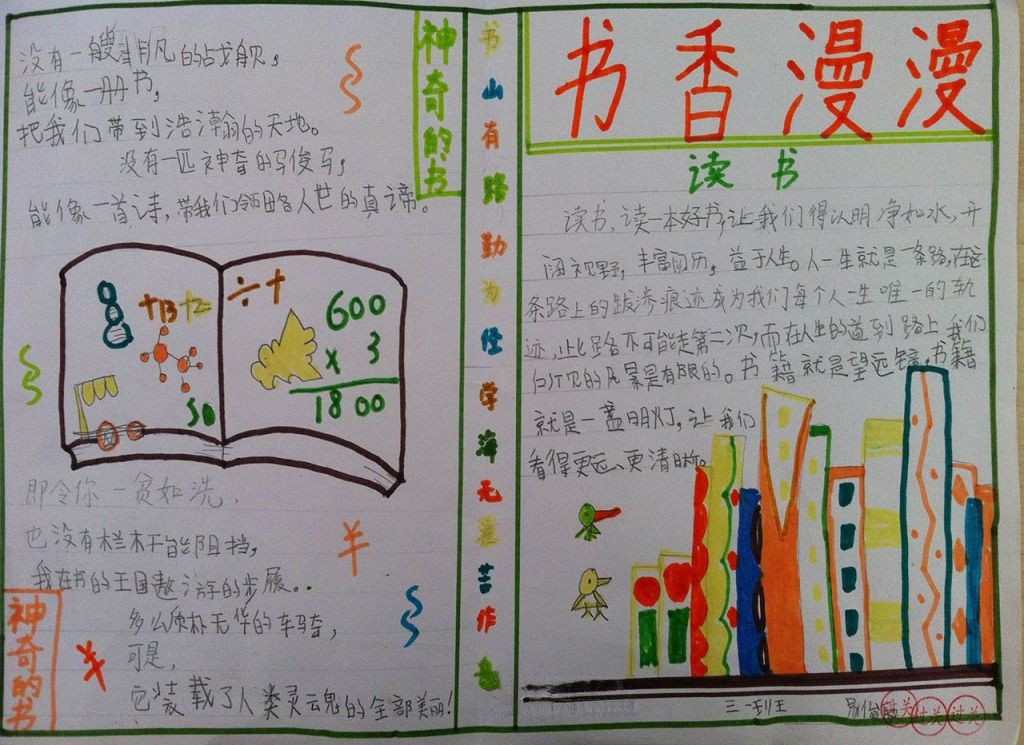 没有一艘非凡的战舰,
能像一册书,
把我们带到浩瀚的天地。
没有一匹神奇的骏马,
能像一首诗,带我们领略人世的真谛。
神奇的书
8
+13
+12
50
÷+
600
×3
1800
即令你一贫如洗,
也没有栏杆能阻挡,
我在书的王国遨游的步履。
多么质朴无华的车骑,
可是,
它装载了人类灵魂的全部美丽!
神奇的书
书山有路勤为径学海无涯苦作舟
书香漫漫
读书
读书,读一本好书,让我们得以明净如水,开
阔视野,丰富阅历,益于人生。人一生就是一条路,在这
条路上的跋涉痕迹成为我们每个人一生唯一的轨
迹,此路不可能走第二次,而在人生的道路上我们
的风景是有限的。书籍就是望远镜,书籍
就是一盏明灯,让我们
看得更远、更清晰。
三一班
过关
过关
过关